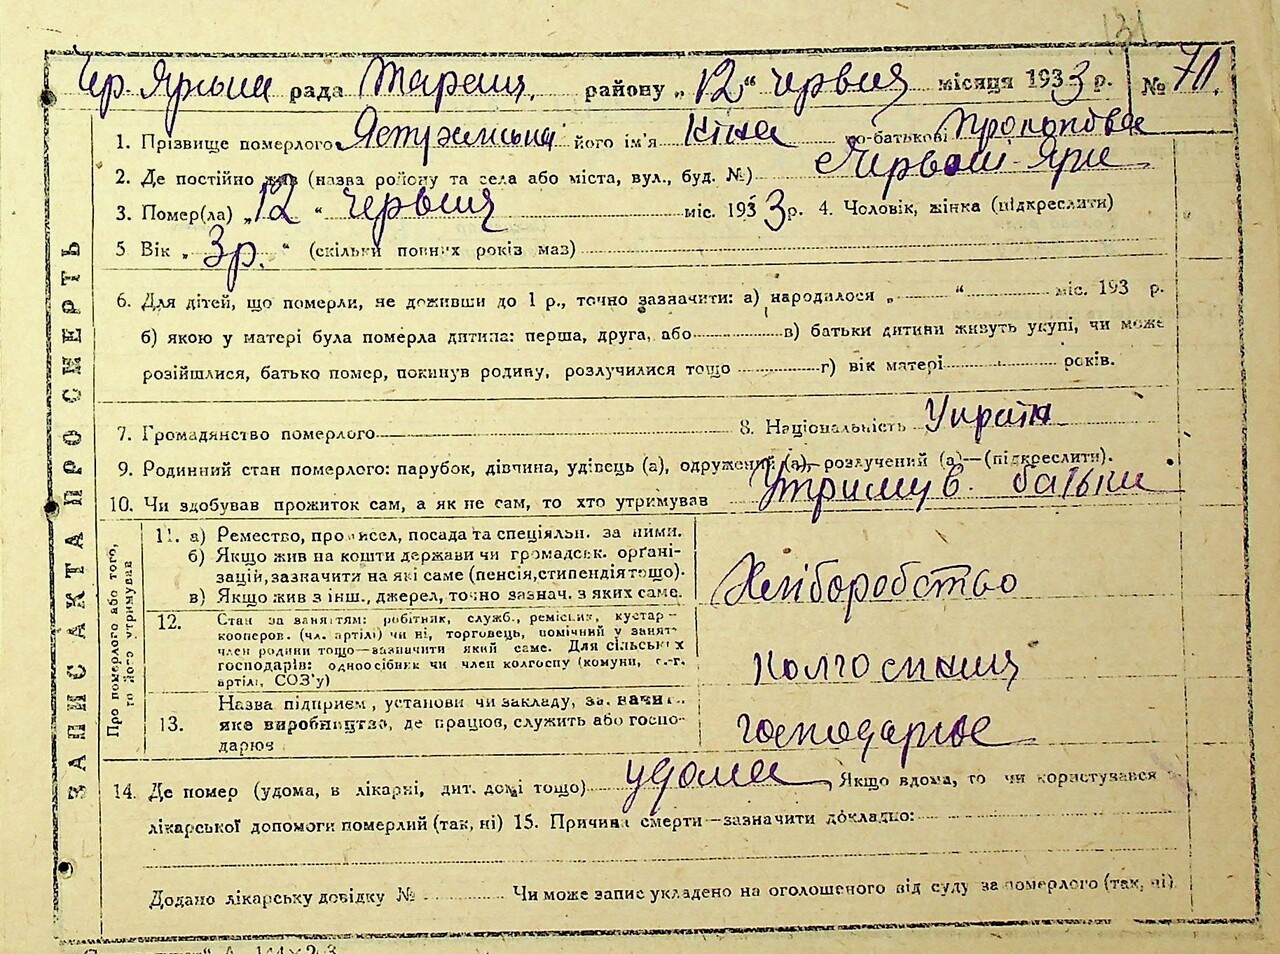 131
Чер-Ярська рада Таращ. району „12“ червня місяця 1933 р. № 70.
ЗАПИС АКТА ПРО СМЕРТЬ
1. Прізвище померлого Ястремська його ім'я Ніна по-батькові Прокопівна
2. Де постійно жив (назва району та села або міста, вул., буд. №) с Червоні-Яри
3. Помер(ла) „12“ червня міс. 1933 р. 4. Чоловік, жінка (підкреслити)
5 Вік „3р.“ (скільки повних років мав)
6. Для дітей, що померли, не доживши до 1 р., точно зазначити: а) народилося „ “ міс. 193 р.
б) якою у матері була померла дитина: перша, друга, або в) батьки дитини живуть укупі, чи може
розійшлися, батько помер, покинув родину, розлучилися тощо г) вік матері років.
7. Громадянство померлого 8. Національність Україн
9. Родинний стан померлого: парубок, дівчина, удівець (а), одружений (а), розлучений (а)—(підкреслити).
10. Чи здобував прожиток сам, а як не сам, то хто утримував Утримув. батьки
Про померлого або того, хто його утримував
11. а) Ремество, промисел, посада та спеціяльн. за ними.
б) Якщо жив на кошти держави чи громадськ. орґані-
зацій, зазначити на які саме (пенсія, стипендія тощо).
в) Якщо жив з інш., джерел, точно зазнач. з яких саме.
Хліборобство
12. Стан за заняттям: робітник, служб., реміснк, кустар-
кооперов. (чл. артілі) чи ні, торговець, помічний у занят-
член родини тощо—зазначити який саме. Для сільських
господарів: одноосібник чи член колгоспу (комуни, с.-г.
артілі, СОЗ'у)
колгоспниця
13. Назва підприєм, установи чи закладу, зазначит.
яке виробництво, де працює, служить або госпо-
дарює
господарює
14. Де помер (удома, в лікарні, дит. домі тощо) удома Якщо вдома, то чи користувався
лікарської допомоги померлий (так, ні) 15. Причина смерти—зазначити докладно:
Додано лікарську довідку № Чи може запис укладено на оголошеного від суду за померлого (так, ні)